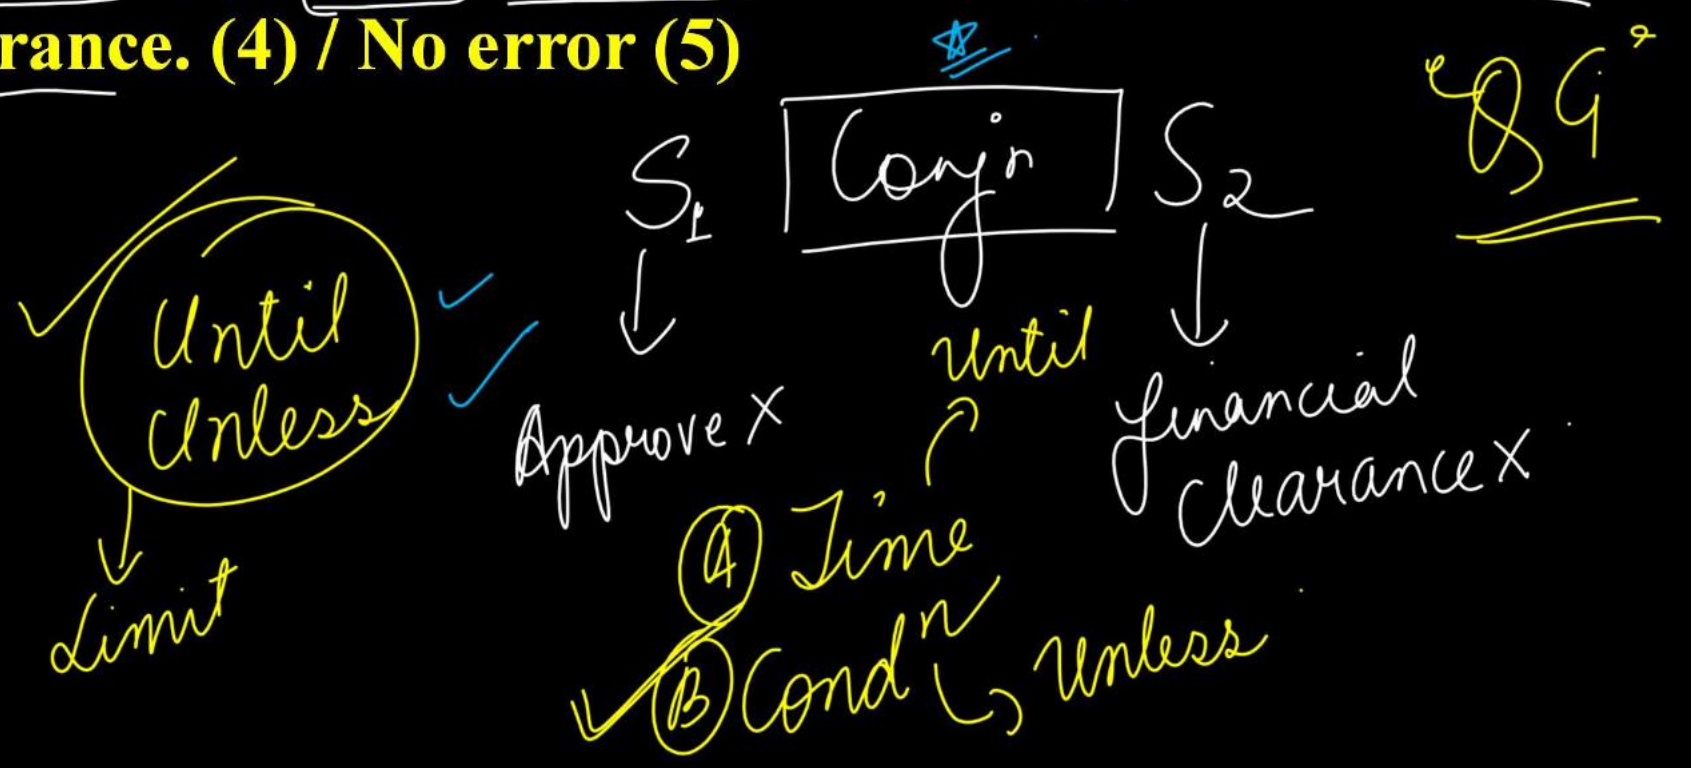 rance. (4) / No error (5)
S1 Conjn S2
"QG"
Until
Unless
Limit
Approve X
Until
Financial
Clearance X
A Time
B Condn Unless